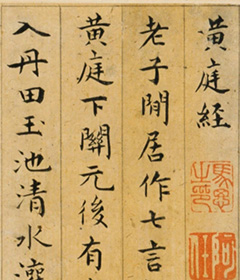 黃庭経
老子閒居作七言
黃庭下關元後有
入丹田玉池清水灌